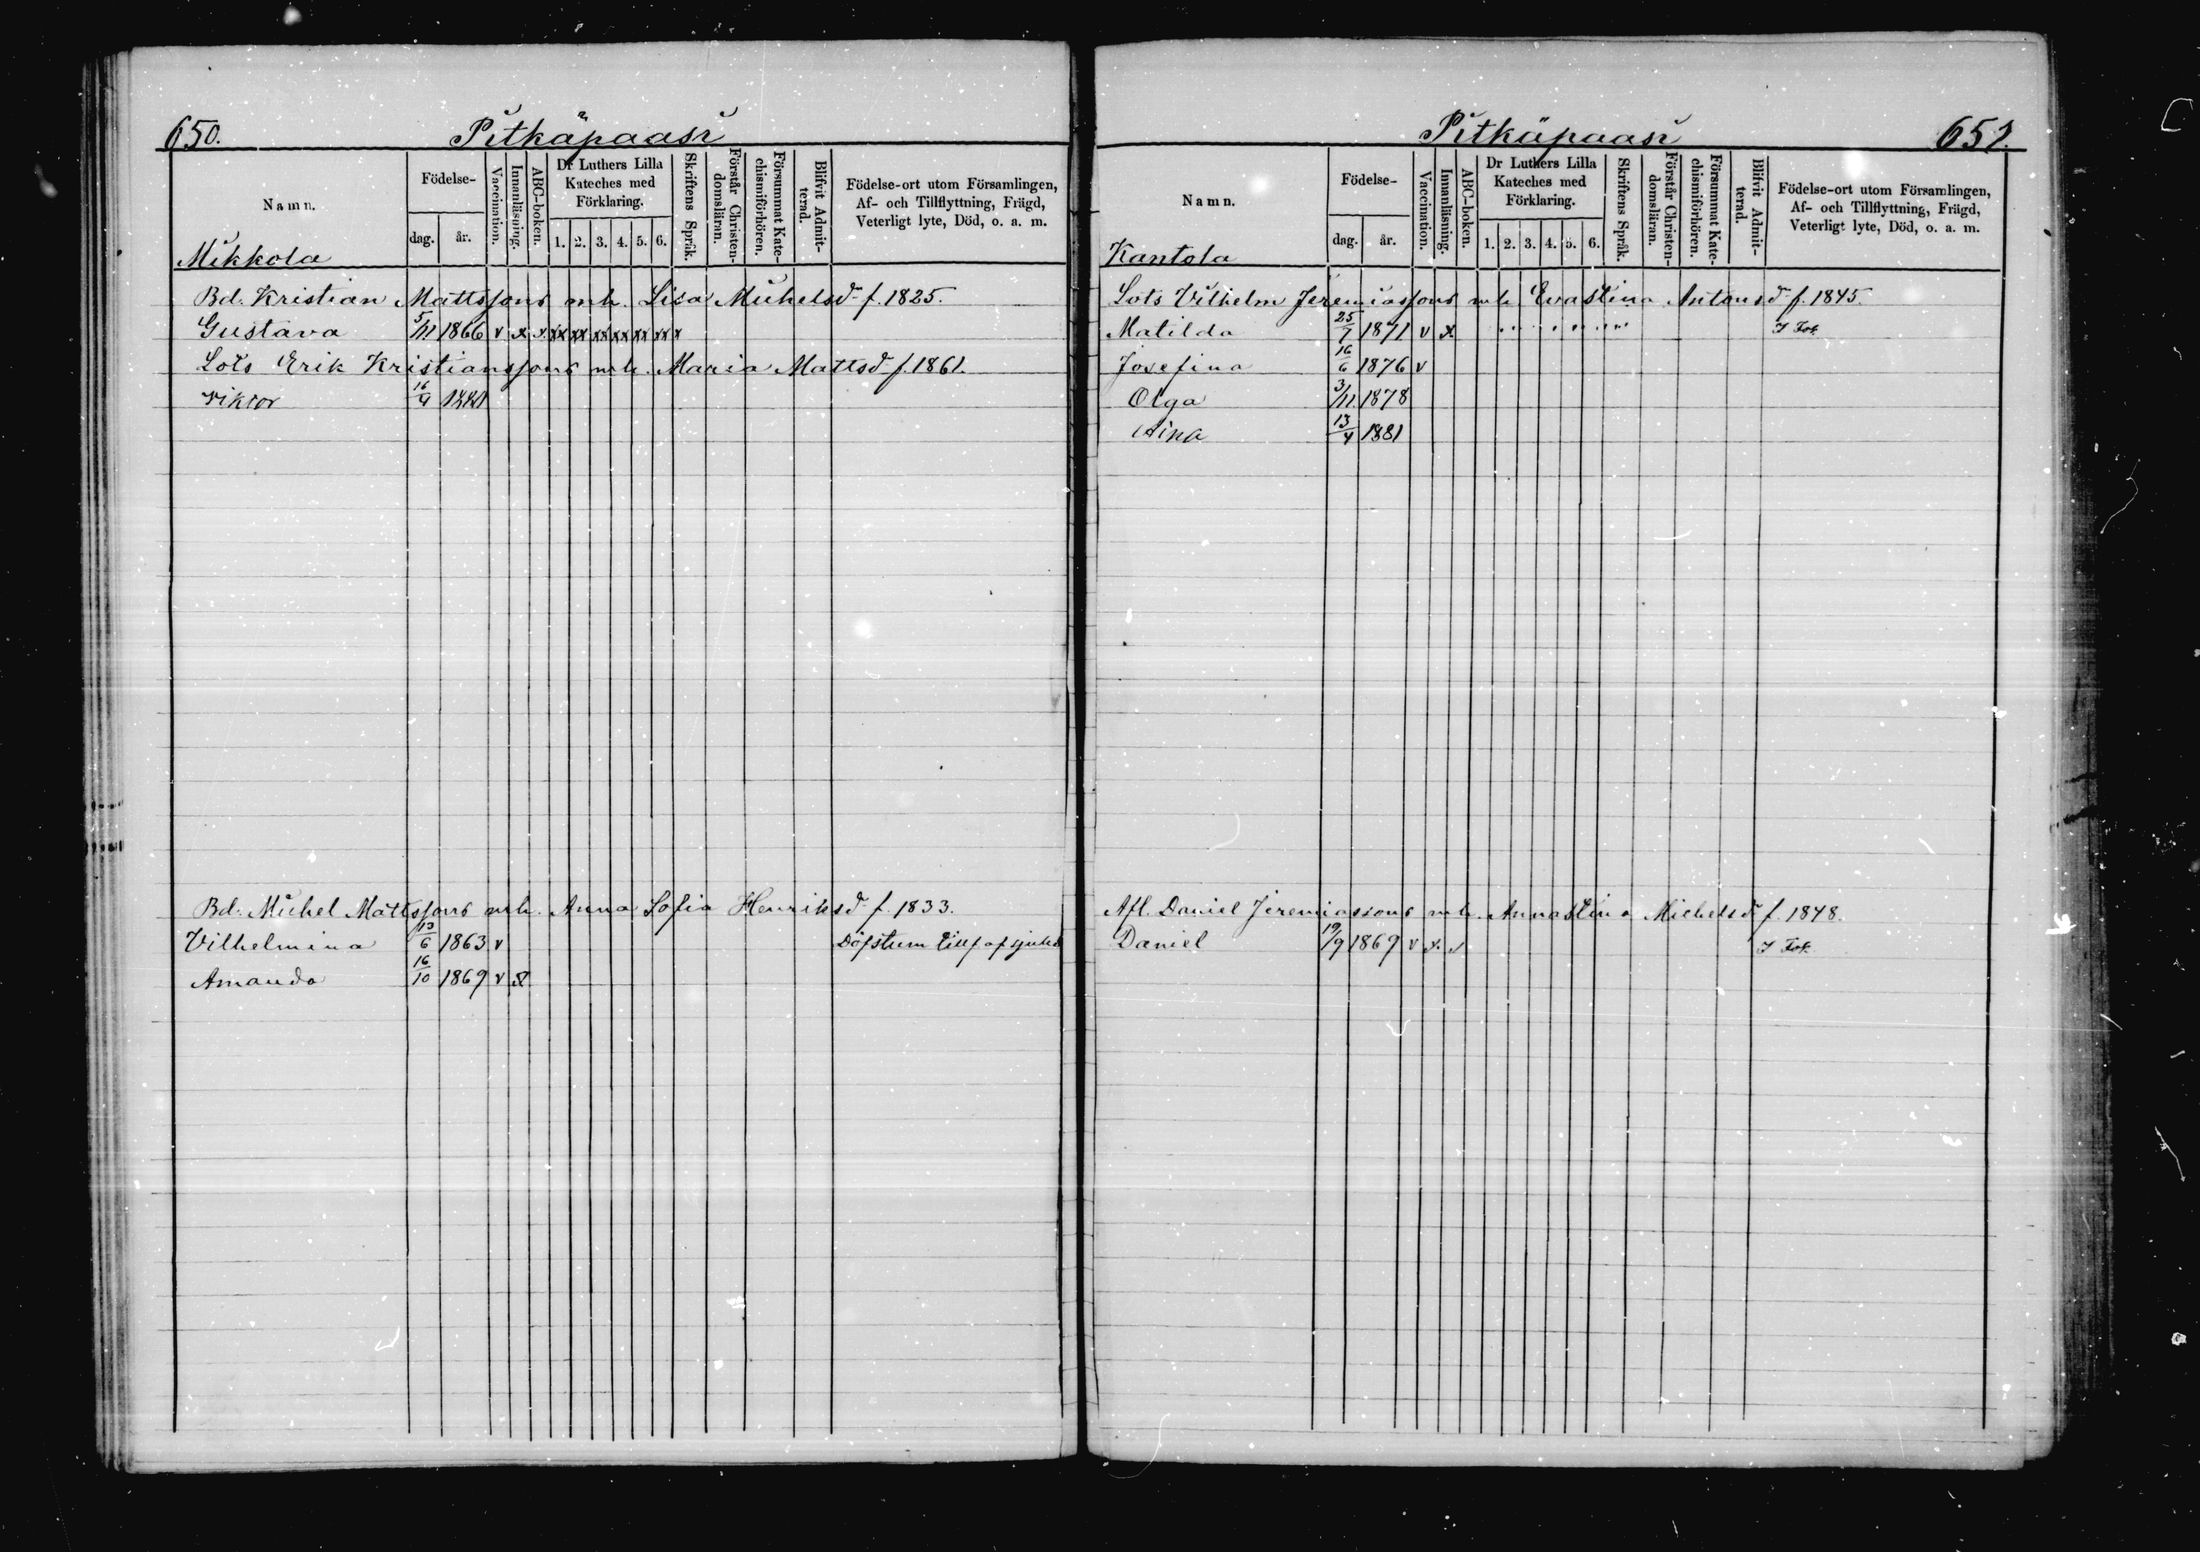 650.
Pitkäpaasi
Namn.
Födelse-
dag.
år.
Vaccination.
Innanläsning.
ABC-boken.
Dr Luthers Lilla
Kateches med
Förklaring.
1. 2. 3. 4. 5. 6.
Skriftens Språk.
Förstår Christen-
domsläran.
Försummat Kate-
chismiförhören.
Blifvit Admit-
terad.
Födelse-ort utom Församlingen,
Af- och Tillflyttning, Frägd,
Veterligt lyte, Död, o. a. m.
Mikkola
Bd. Kristian Mattssons mh. Lisa Michelsd f. 1825.
Gustava 5/11 1866 v x x xx xx xx xx xx xx x
Lots Erik Kristianssons mh. Maria Mattsd f. 1861.
Viktor 16/9 1881
Bd. Michel Mattssons mh. Anna Sofia Henriksd f. 1833.
Vilhelmina 13/6 1863 v Döfstum tillf af sjukd
Amanda 16/10 1869 v x
Pitkäpaasi
651.
Namn.
Födelse-
dag.
år.
Vaccination.
Innanläsning.
ABC-boken.
Dr Luthers Lilla
Kateches med
Förklaring.
1. 2. 3. 4. 5. 6.
Skriftens Språk.
Förstår Christen-
domsläran.
Försummat Kate-
chismiförhören.
Blifvit Admit-
terad.
Födelse-ort utom Församlingen,
Af- och Tillflyttning, Frägd,
Veterligt lyte, Död, o. a. m.
Kantola
Lots Vilhelm Jeremiassons mh Evastina Antonsd f. 1845.
Matilda 25/7 1871 v x
Josefina 16/6 1876 v
Olga 3/11 1878
Aina 13/4 1881
Afl. Daniel Jeremiassons mh. Annastina Michelsd f. 1848.
Daniel 19/9 1869 v x